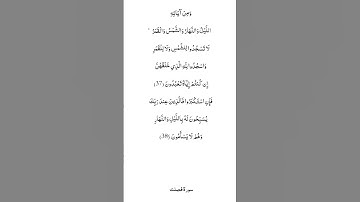 وَمِنْ آيَاتِهِ
اللَّيْلُ وَالنَّهَارُ وَالشَّمْسُ وَالْقَمَرُ ۚ
لَا تَسْجُدُوا لِلشَّمْسِ وَلَا لِلْقَمَرِ
وَاسْجُدُوا لِلَّهِ الَّذِي خَلَقَهُنَّ
إِن كُنتُمْ إِيَّاهُ تَعْبُدُونَ (37)
فَإِنِ اسْتَكْبَرُوا فَالَّذِينَ عِندَ رَبِّكَ
يُسَبِّحُونَ لَهُ بِاللَّيْلِ وَالنَّهَارِ
وَهُمْ لَا يَسْأَمُونَ (38)
سورة فصلت